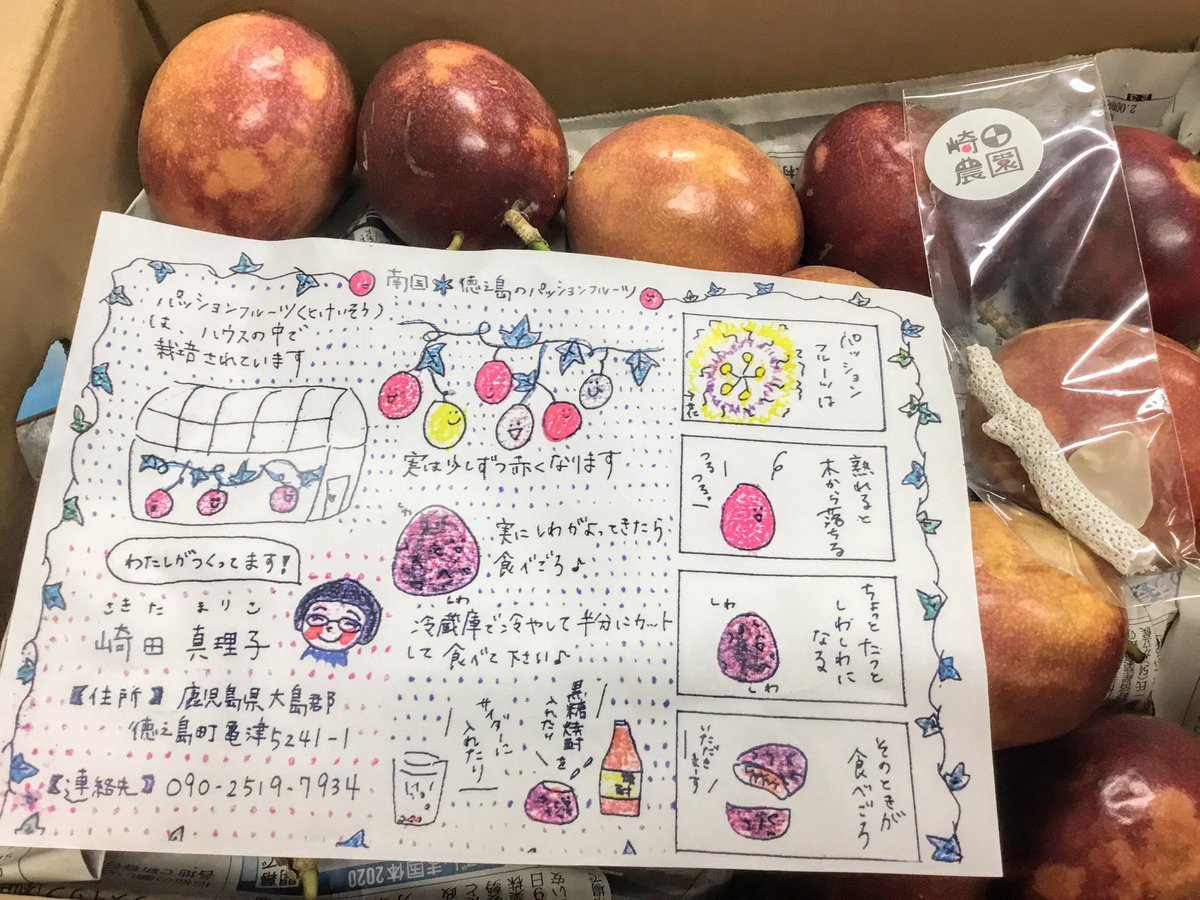 崎田
農園
南国 徳之島のパッションフルーツ
パッションフルーツ(とけいそう)
は、ハウスの中で
栽培されています
わたしがつくってます!
さきた まりこ
崎田 真理子
【住所】鹿児島県大島郡
徳之島町亀津5241-1
【連絡先】090-2519-7934
実は少しずつ赤くなります
しわ
実にしわがよってきたら
食べごろ♪
しわ
冷蔵庫で冷やして半分にカット
して食べて下さい♪
サイダーに
入れたり
黒糖焼酎を
入れたり
パッション
フルーツは
熟れると
木から落ちる
つるつる
つるつる
ちょっとたつと
しわしわに
なる
しわ
しわ
そのときが
食べごろ
いただき
ます
国体2020